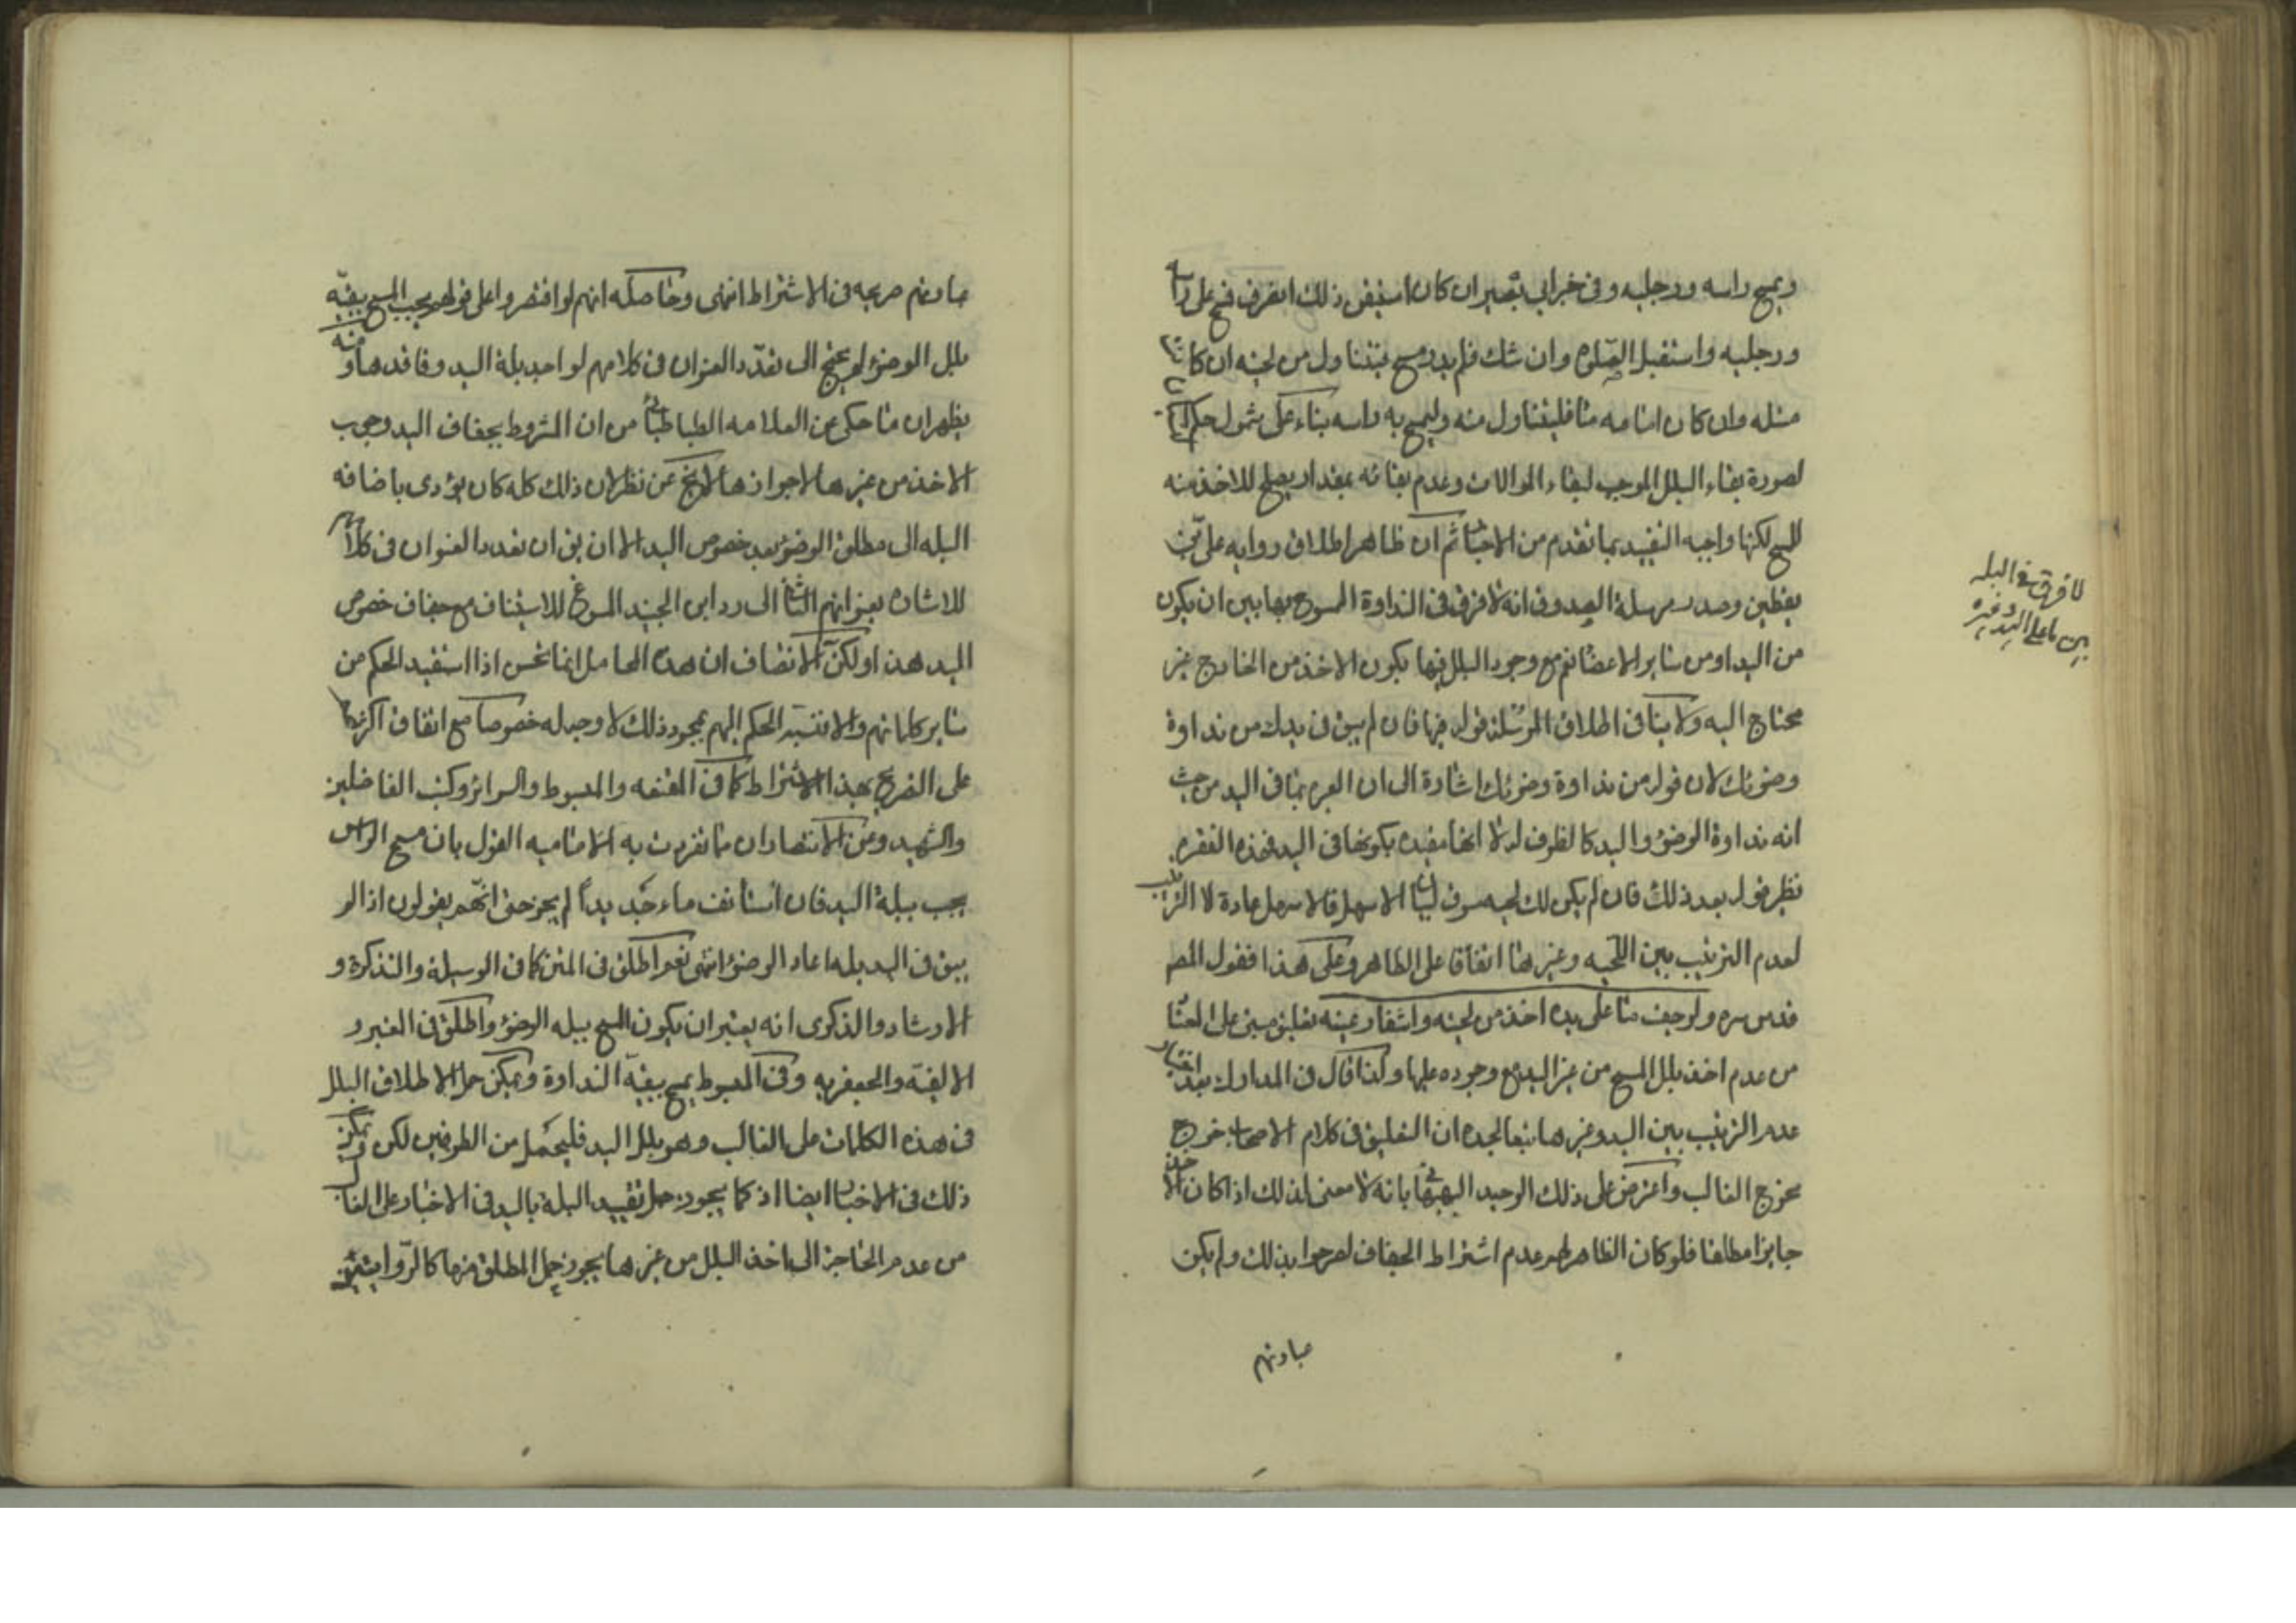 ويمسح راسه ورجليه وفي خبر ابي بصير ان كان استيقن ذلك انصرف فمسح على راسه
ورجليه واستقبل الصلوة وان شك فلم يدر مسح فيتناول من لحيته ان كانت
مبتله وان كان امامه ماء فليتناول منه وليمسح به راسه بناء على شمول حكم
لصورة بقاء البلل الموجب لبقاء الموالات وعدم بقائه بمقدار يصلح للاخذ منه
للمسح لكنها واجبه التقييد بما تقدم من الاخبار ثم ان ظاهر اطلاق روايه على بن
يقطين وصدر مرسلة الصدوق انه لا فرق في النداوة الممسوح بها بين ان يكون
من اليد او من ساير الاعضاء فمع وجود البلل فيها يكون الاخذ من الخارج غير
محتاج اليه ولا ينافى اطلاق المرسلة قوله فيها فان لم يبق في يدك من نداوة
وضوئك لان قوله من نداوة وضوئك اشارة الى ان العبره بما في اليد من حيث
انه نداوة الوضوء واليد كالظرف له لا انها مقيده بكونها في اليد فهذه الفقره
نظير قوله بعد ذلك فان لم يكن لك لحيه مسوق لبيان الاسهل فالاسهل عادة لا الترتيب
لعدم الترتيب بين اللحيه وغيرها اتفاقا على الظاهر وعلى هذا فقول المصـ
قدس سره ولو جف ما على يده اخذ من لحيته واشفار عينيه تعليق مبنى على الغالب
من عدم اخذ بلل المسح من غير اليد مع وجوده عليها وكذا قال في المدارك بعد اختيار
عدم الترتيب بين اليد وغيرها تبعا لجده ان التعليق في كلام الاصحاب خرج
مخرج الغالب واعترض على ذلك الوحيد البهبهاني بانه لا معنى لذلك اذا كان الاخذ
جايزا مطلقا فلو كان الظاهر لهم عدم اشتراط الجفاف لصرحوا بذلك ولم يكن
عبارتهم
لا فرق في البله
بين ما على اليد وغيره
عبارتهم صريحه في الاشتراط انتهى وحاصله انهم لو اقتصروا على قولهم يجب المسح ببقيه
بلل الوضوء لم يحتج الى تعدد العنوان في كلامهم لواجد بلة اليد وفاقدها ومنه
يظهر ان ما حكى عن العلامه الطباطبائي من ان المشروط بجفاف اليد وجوب
الاخذ من غيرها لا جوازها لا يخ عن نظر لان ذلك كله كان يؤدى باضافه
البله الى مطلق الوضوء بعد خصوص اليد الا ان يق ان تعدد العنوان في كلامهم
للاشارة بعنوانهم الثانى الى رد ابن الجنيد المسوغ للاستيناف مع جفاف خصوص
اليد هذا ولكن الانصاف ان هذه المحامل انما تحسن اذا استفيد الحكم من
ساير كلماتهم والا فنسبة الحكم اليهم بمجرد ذلك لا وجه له خصوصا مع اتفاق اكثرها
على التصريح بهذا الاشتراط كما في المقنعه والمبسوط والسرائر وكتب الفاضلين
والشهيد وعن الانتصار ان ما تفردت به الاماميه القول بان مسح الراس
يجب ببلة اليد فان استأنف ماء جديداً لم يجز حتى انهم يقولون اذا لم
يبق في اليد بله اعاد الوضوء انتهى نعم اطلق في المتن كما في الوسيلة والتذكرة و
الارشاد والذكرى انه يعتبر ان يكون المسح ببله الوضوء واطلق في التحرير و
الالفيّة والجعفريه وفي المبسوط يمسح ببقيّة النداوة ويمكن حمل الاطلاق البلل
في هذه الكلمات على الغالب وهو بلل اليد فليحمل من الطرفين لكن يمكن
ذلك في الاخبار ايضا اذ كما يجوز حمل تقييد البلة باليد في الاخبار على الغالب
من عدم الحاجة الى اخذ البلل من غيرها يجوز حمل المطلق منها كالروايتين